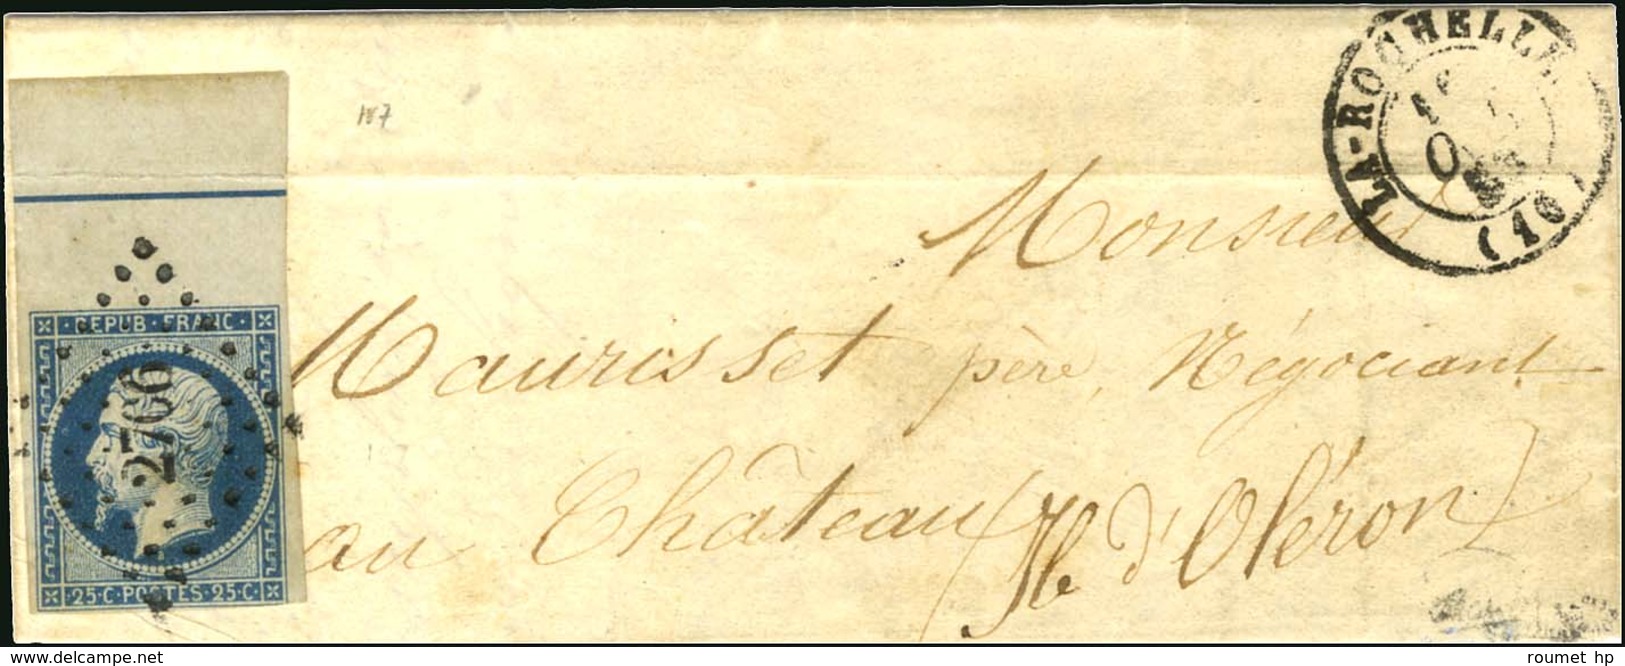 187
LA-ROCHELLE
(16)
REPUB·FRANC·
2766
25·C·POSTES·25·C·
Monsieur
Maurisset père, Négociant
au Château (Ile d'Oléron)
www.delcampe.net
roumet hp